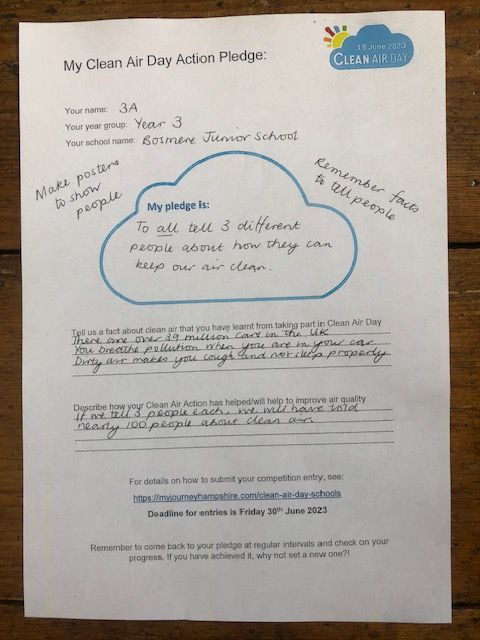 My Clean Air Day Action Pledge:
15 June 2023
CLEAN AIR DAY
Your name: 3A
Your year group: Year 3
Your school name: Bosmere Junior School
Make posters
to show
people
Remember facts
to tell people
My pledge is:
To all tell 3 different
people about how they can
keep our air clean.
Tell us a fact about clean air that you have learnt from taking part in Clean Air Day
There are over 39 million cars in the UK
You breathe pollution when you are in your car
Dirty air makes you cough and not sleep properly
Describe how your Clean Air Action has helped/will help to improve air quality
If we tell 3 people each, we will have told
nearly 100 people about clean air.
For details on how to submit your competition entry, see:
https://myjourneyhampshire.com/clean-air-day-schools
Deadline for entries is Friday 30th June 2023
Remember to come back to your pledge at regular intervals and check on your
progress. If you have achieved it, why not set a new one?!